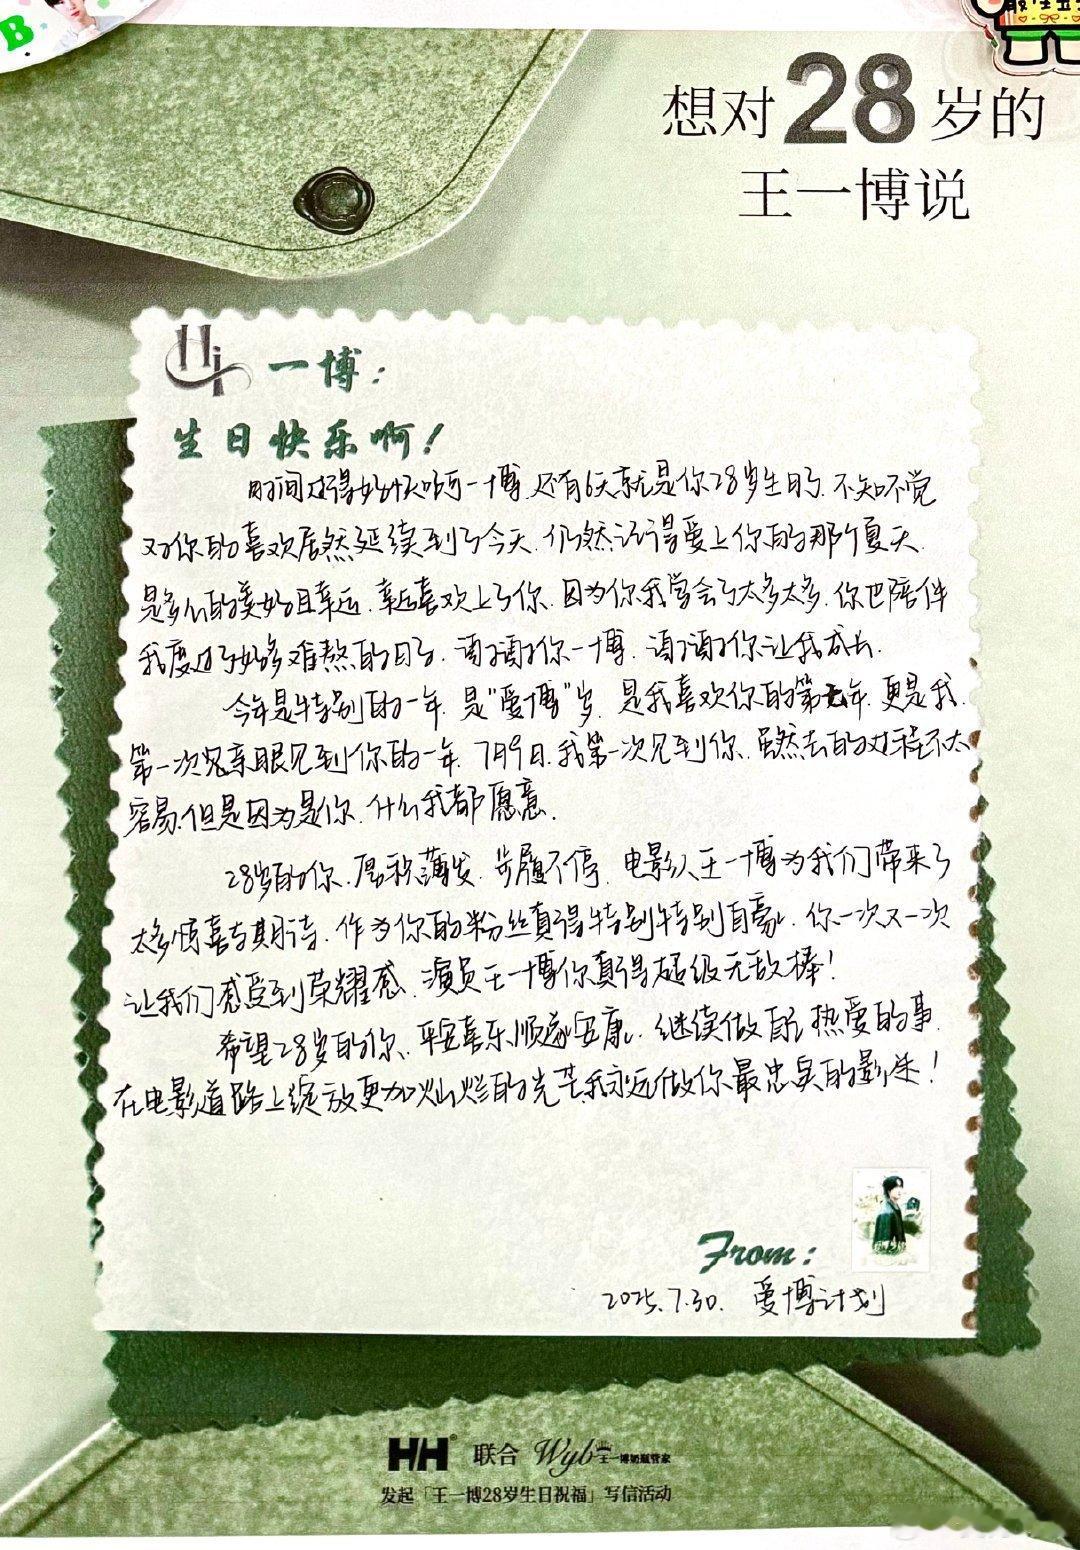 B
想对28岁的
王一博说
Hi 一博：
生日快乐啊！
时间过得好快啊一博，还有6天就是你28岁生日了，不知不觉
对你的喜欢居然延续到了今天，仍然记得爱上你的那个夏天
是多么的美好且幸运，幸运喜欢上了你，因为你我学会了太多太多，你也陪伴
我度过了好多难熬的日子，谢谢你一博，谢谢你让我成长.
今年是特别的一年，是“爱博”岁，是我喜欢你的第年，更是我
第一次亲眼见到你的一年，7月9日，我第一次见到你，虽然去的过程不太
容易，但是因为是你，什么我都愿意.
28岁的你，厚积薄发，步履不停，电影人王一博为我们带来了
太多惊喜与期待，作为你的粉丝真得特别特别自豪，你一次又一次
让我们感受到荣耀感，演员王一博你真得超级无敌棒！
希望28岁的你，平安喜乐，顺遂安康，继续做自己热爱的事，
在电影道路上绽放更加灿烂的光芒，我永远做你最忠实的影迷！
From：
2025.7.30. 爱博计划
HH 联合 Wyb王一博奶瓶管家
发起「王一博28岁生日祝福」写信活动